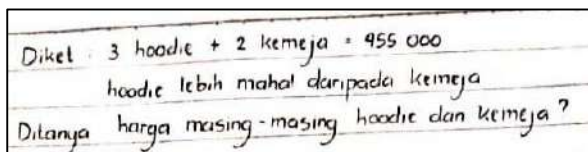 Diket : 3 hoodie + 2 kemeja = 455 000
hoodie lebih mahal daripada kemeja
Ditanya harga masing-masing hoodie dan kemeja ?